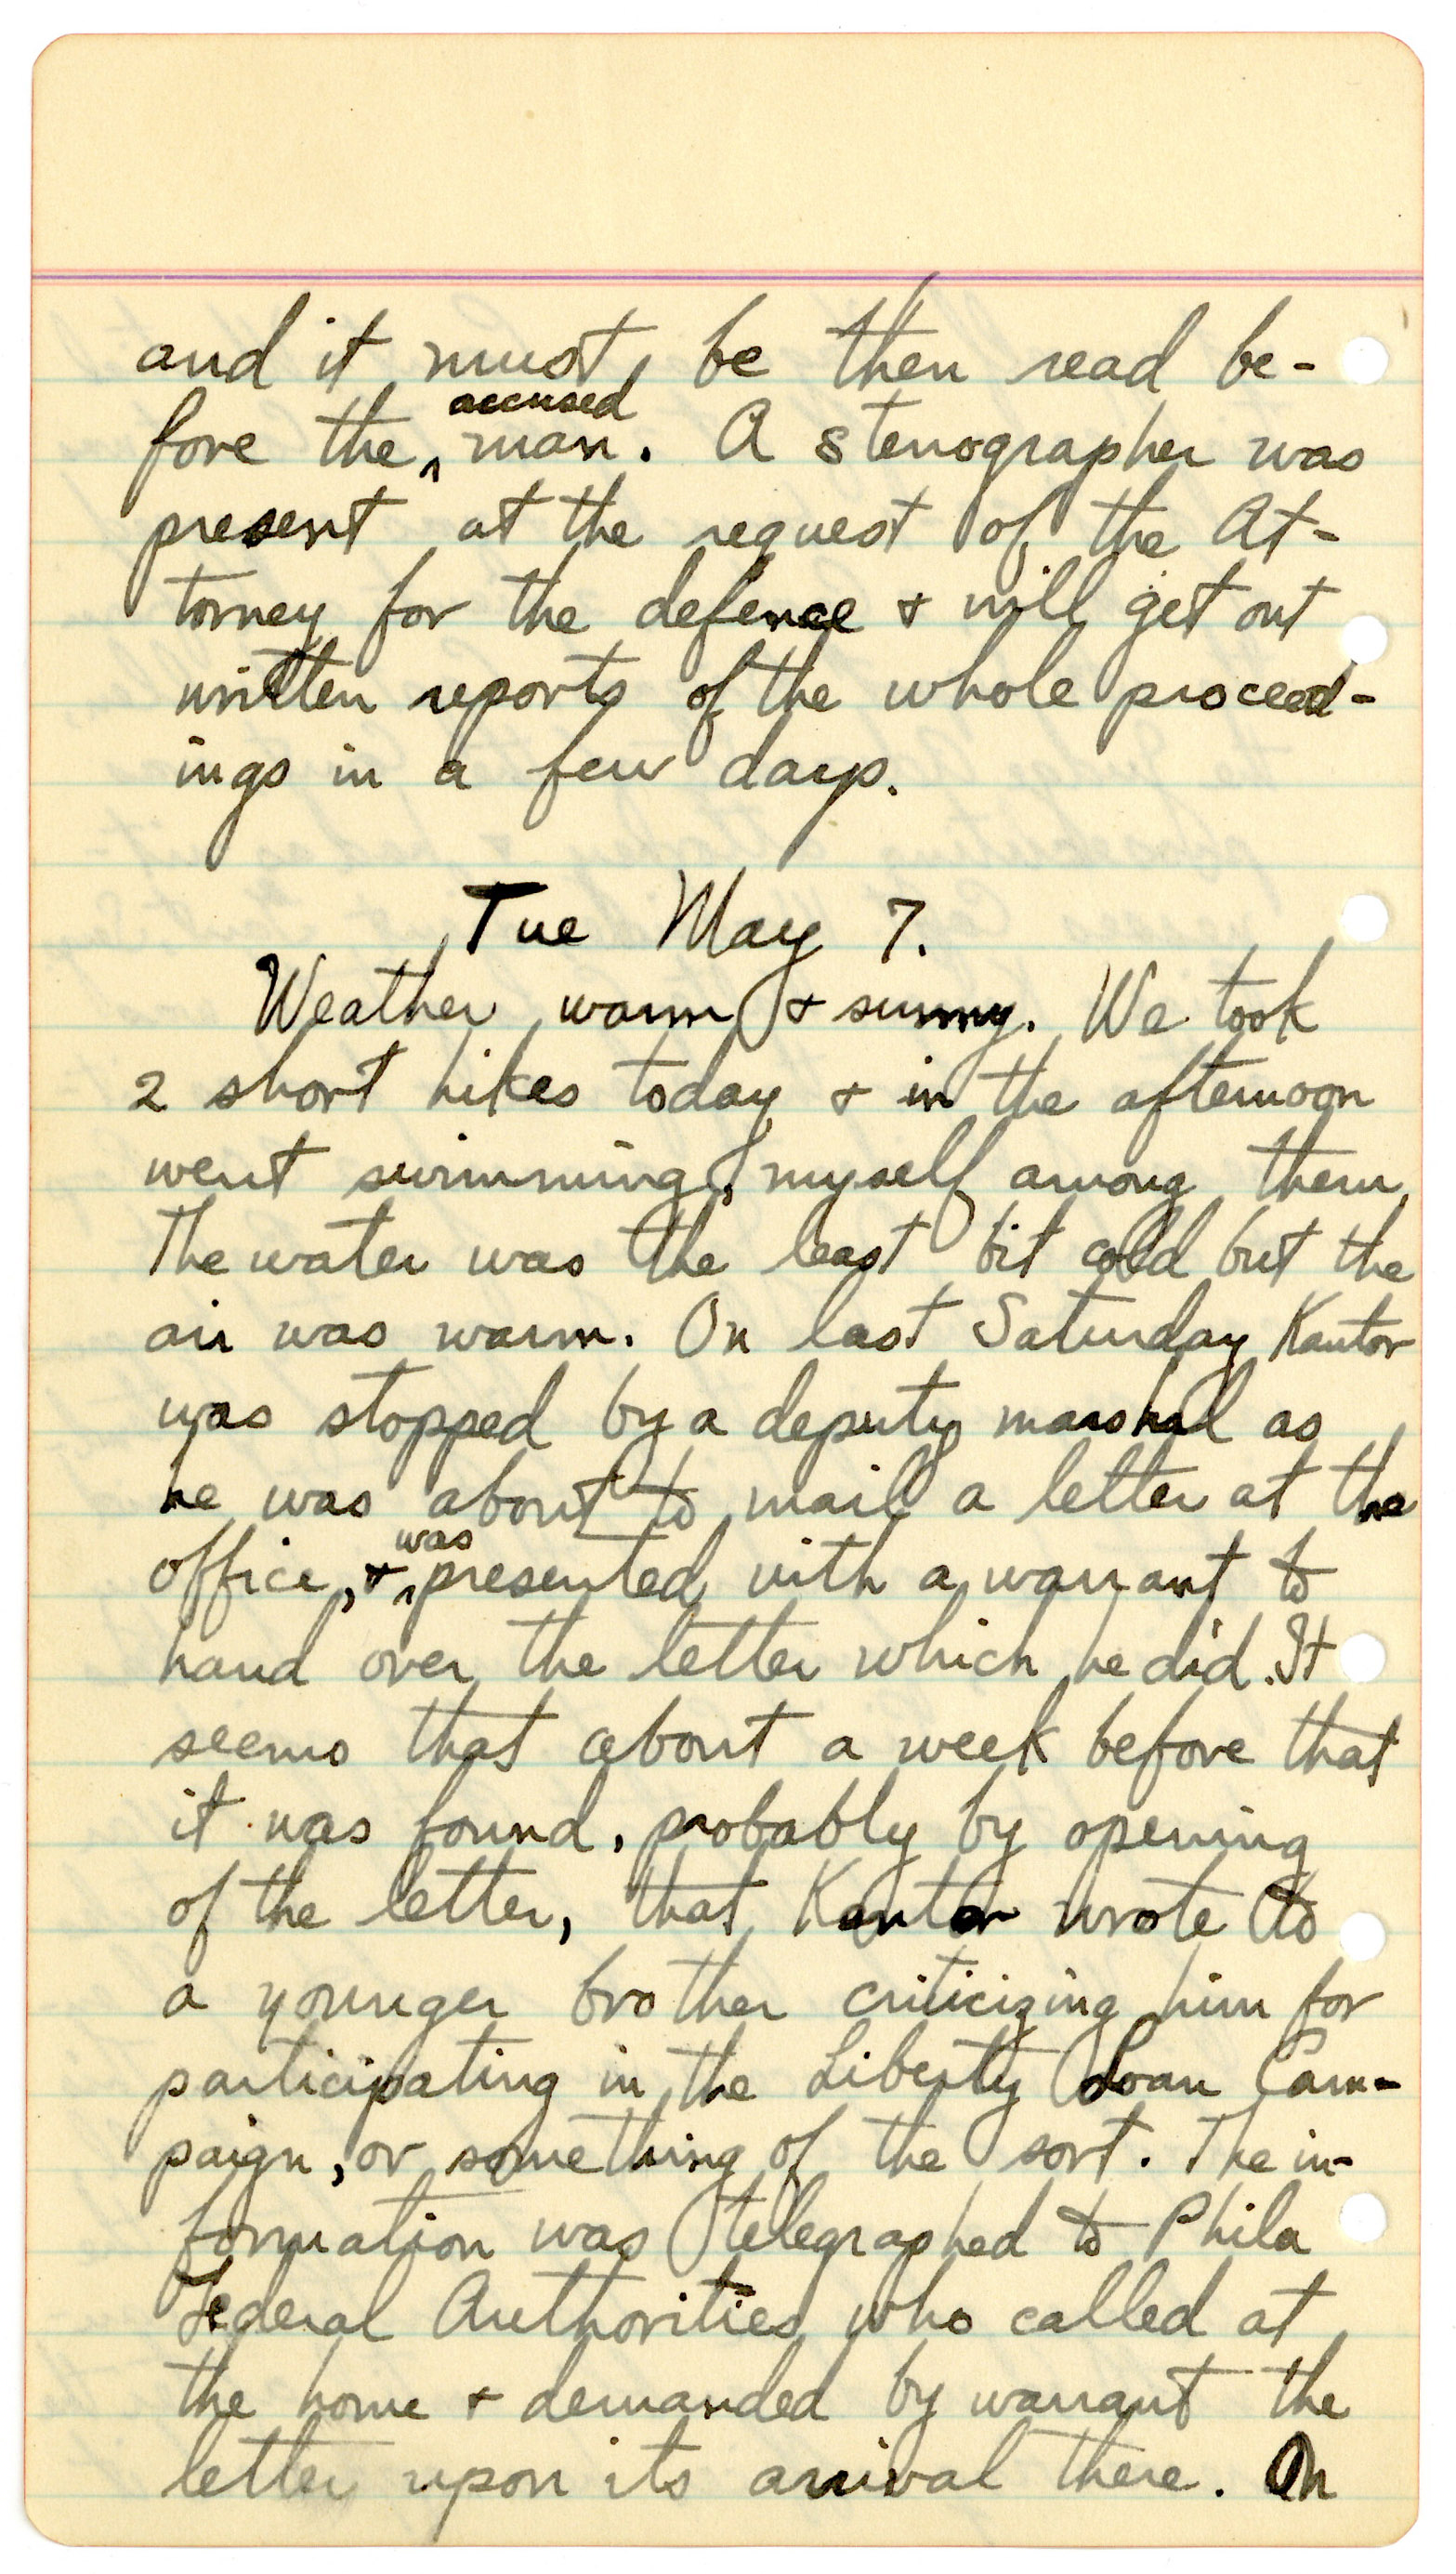 and it must be then read be-
fore the ^ accused man. A stenographer was
present at the request of the At-
torney for the defence & will get out
written reports of the whole proceed-
ings in a few days.
Tue May 7.
Weather warm & sunny. We took
2 short hikes today & in the afternoon
went swimming, myself among them.
The water was the least bit cold but the
air was warm. On last Saturday Kantor
was stopped by a deputy marshal as
he was about to mail a letter at the
office, & ^ was presented with a warrant to
hand over the letter which he did. It
seems that about a week before that
it was found, probably by opening
of the letter, that Kantor wrote to
a younger brother criticizing him for
participating in the Liberty Loan Cam-
paign, or something of the sort. The in-
formation was telegraphed to Phila
Federal Authorities who called at
the home & demanded by warrant the
letter upon its arrival there. On